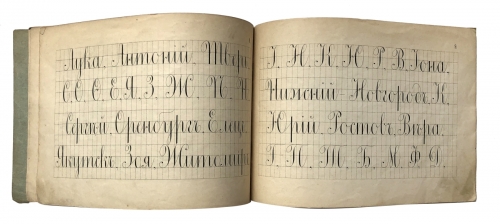 Лука. Антоній. Тверь.
О. С. О. Е. Я. З. Ж. П. Н.
Сергѣй. Оренбургъ. Елец
Якутскъ. Зоя. Житомиръ
І. Н. К. Ю. Р. В. Іона.
Нижній-Новгородъ. К.
Юрій. Ростовъ. Вѣра.
І. П. Т. Б. М. Ф. Д.